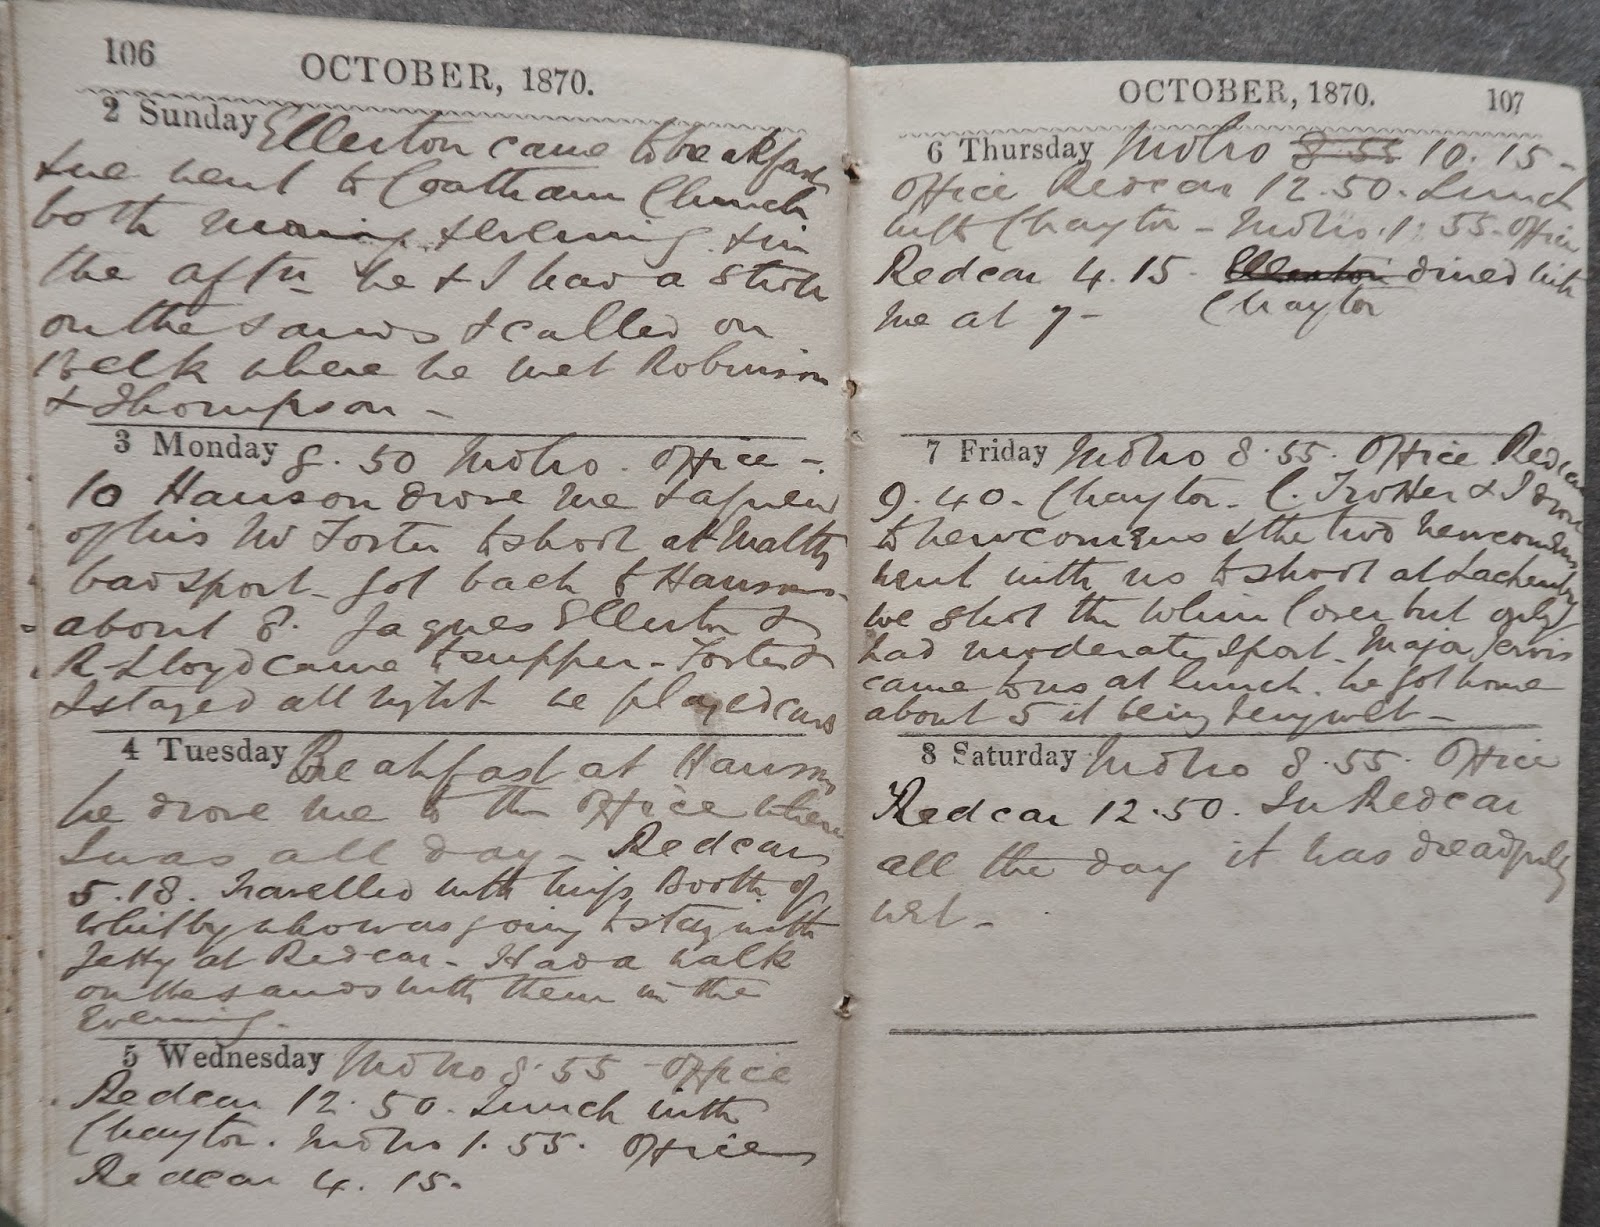 106
OCTOBER, 1870.
2 Sunday Ellerton came to breakfast
& we went to Coatham Church
both morning & evening & in
the aftn he & I had a stroll
on the sands & called on
where he met Robinson
& Thompson -
3 Monday 8.50 Mdbro. Office -
10 Hanson drove me & a friend
of his Mr Foster to shoot at Maltby
bad sport - got back to Hansons
about 8. Jaques Ellerton &
R Lloyd came to supper - Foster &
I stayed all night we played cards
4 Tuesday Breakfast at Hansons
he drove me to the Office where
I was all day - Redcar
5.18. Travelled with Miss Booth of
Whitby who was going to stay with
Jetty at Redcar - Had a walk
on the sands with them in the
Evening.
5 Wednesday Mdbro 8.55 - Office
Redcar 12.50. Lunch with
Chaytor. Mdbro 1.55. Office
Redcar 4.15.
OCTOBER, 1870.
107
6 Thursday Mdbro 8.55 10.15 -
Office Redcar 12.50. Lunch
with Chaytor - Mdbro. 1.55 - Office
Redcar 4.15 - Ellerton dined with
me at 7 - Chaytor
7 Friday Mdbro 8.55. Office Redcar
9.40 - Chaytor - C. Trotter & I drove
to Newcomens & the two Newcomens
went with us to shoot at Lackenby
we shot the Whin Cover but only
had moderate sport - Major Jervis
came to us at lunch. we got home
about 5 it being very wet -
8 Saturday Mdbro 8.55. Office
Redcar 12.50. In Redcar
all the day it was dreadfully
wet -